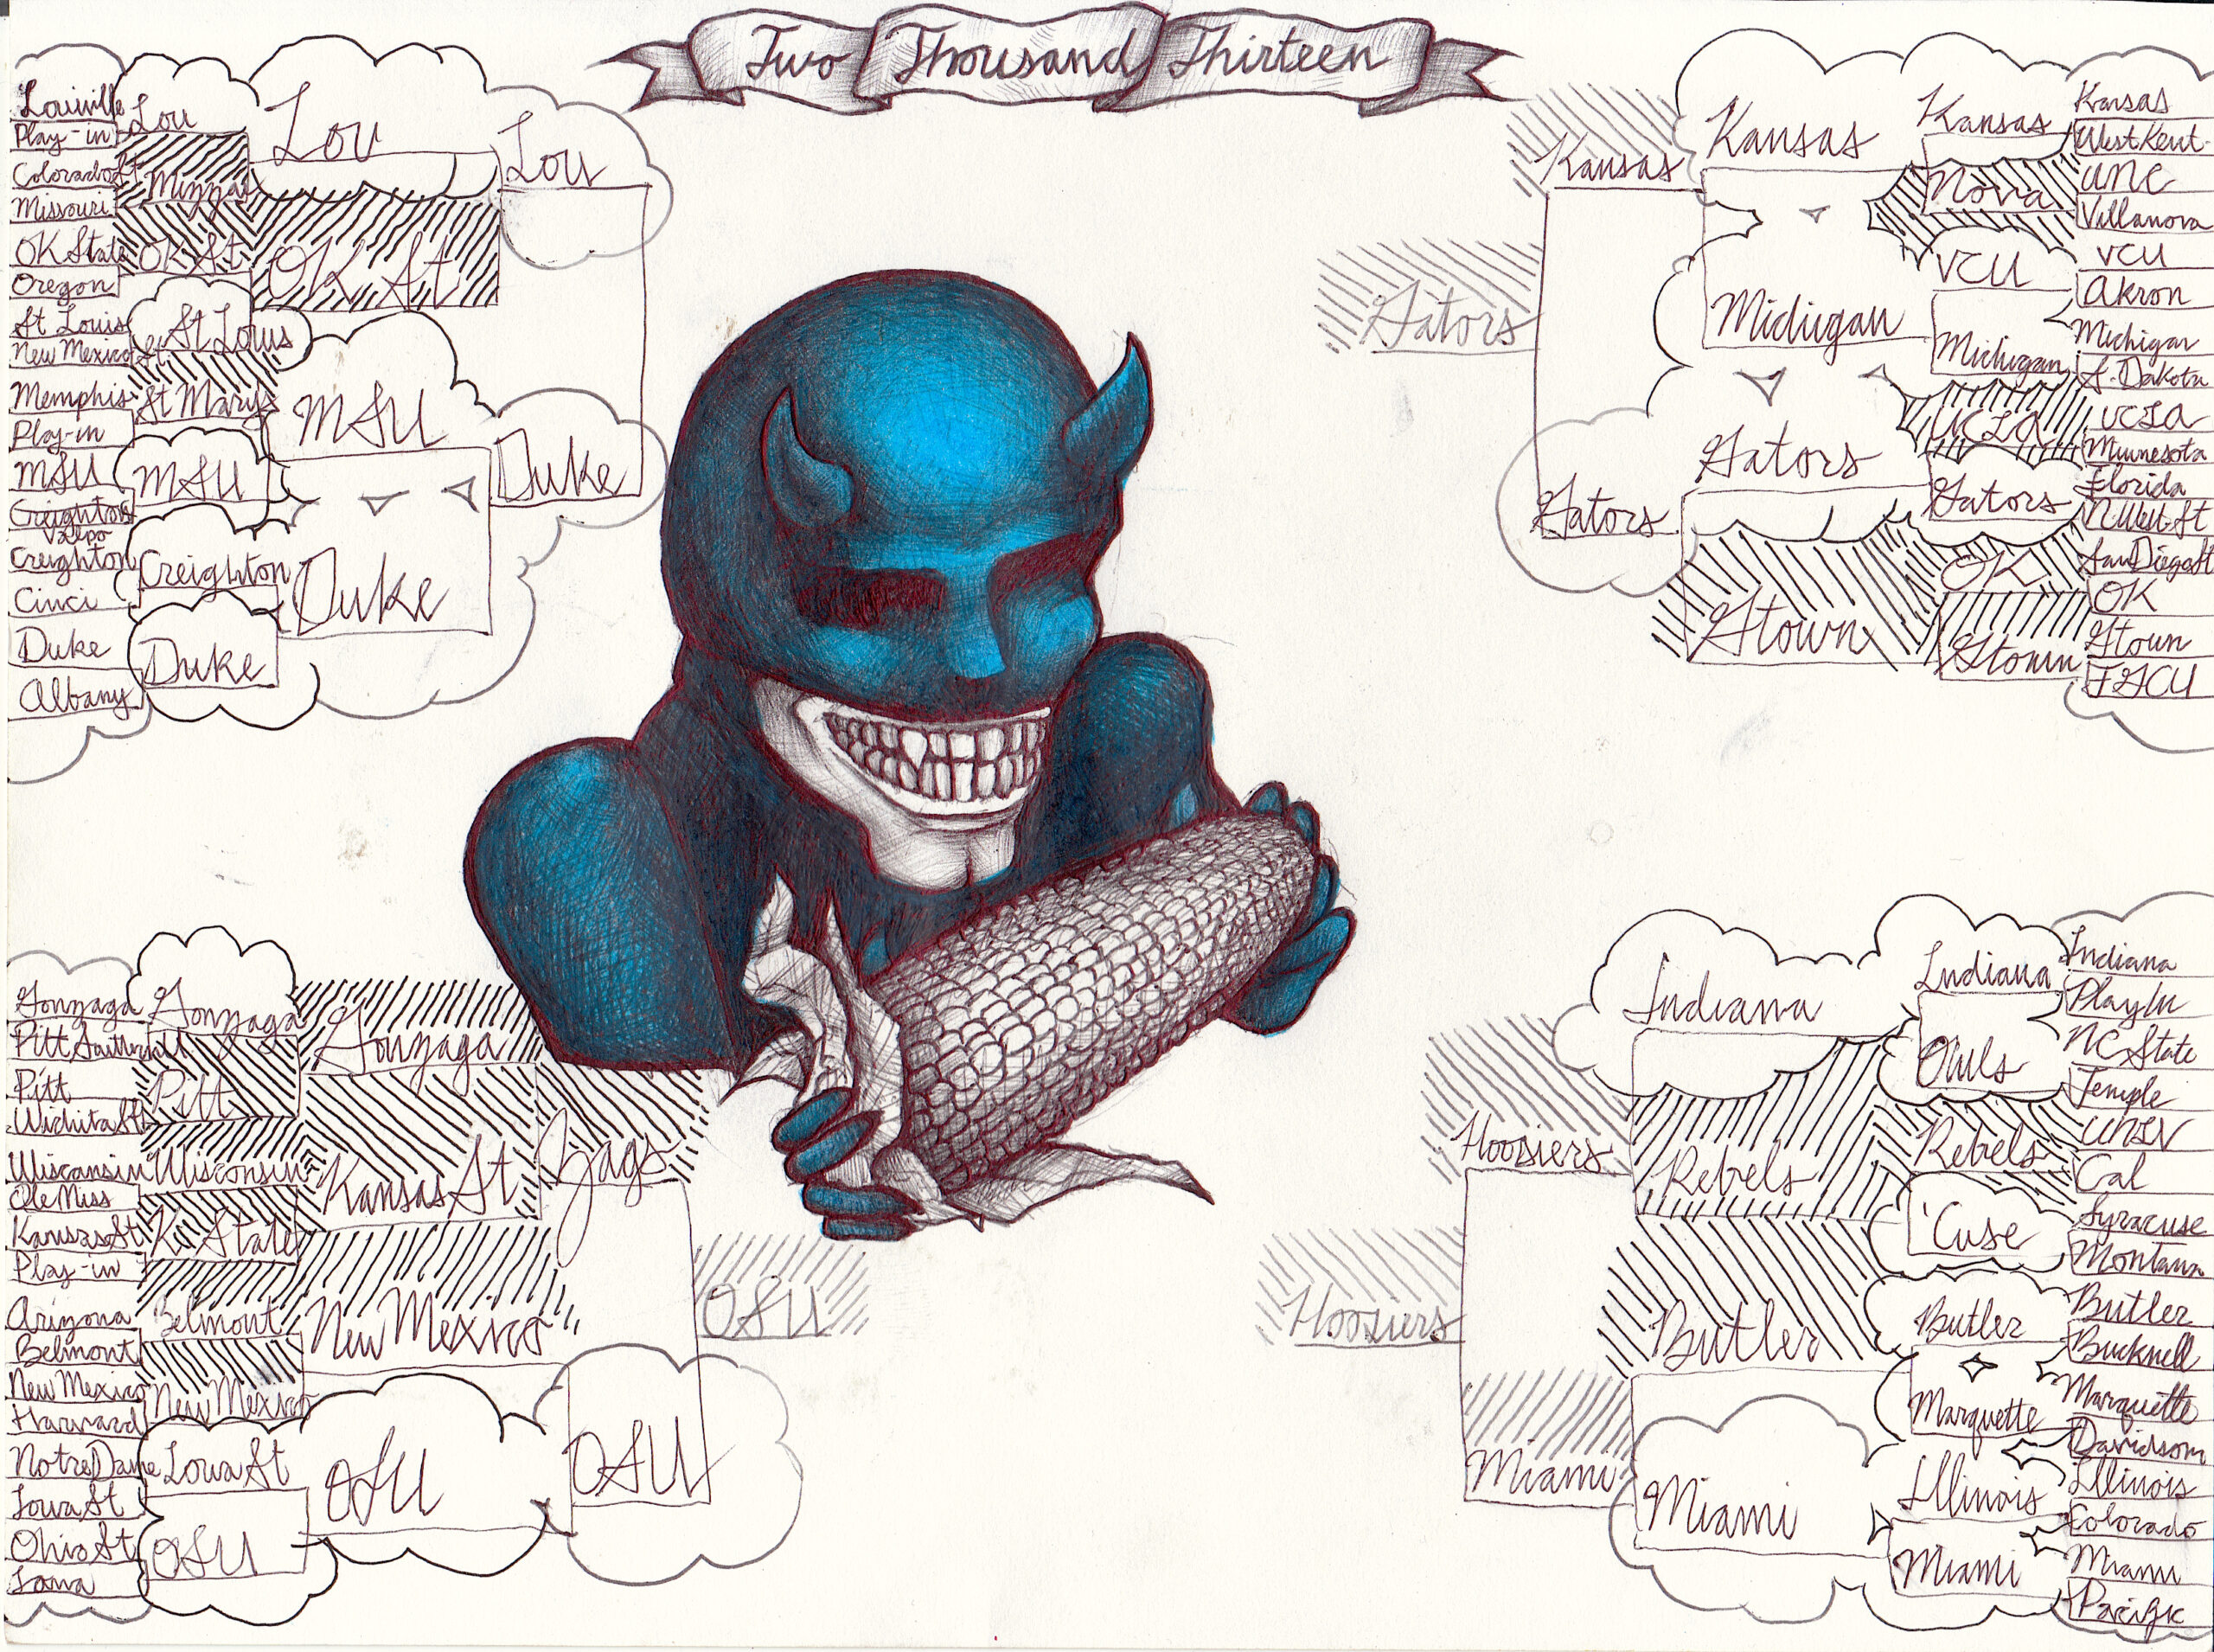 Two Thousand Thirteen
Louiville
Play-in
Colorado St
Missouri
OK State
Oregon
St Louis
New Mexico St.
Memphis
Play-in
MSU
Valpo
Creighton
Cinci
Duke
Albany
Lou
Mizza
OK St
St Louis
St Marys
MSU
Creighton
Duke
Lou
OK St
MSU
Duke
Lou
Duke
Gonzaga
Pitt
Wichita St
Wisconsin
Ole Miss
Kansas St
Play-in
Arizona
Belmont
New Mexico
Harvard
Notre Dame
Iowa St
Ohio St
Iona
Gonzaga
Pitt
Wisconsin
K State
Belmont
New Mexico
Iowa St
OSU
Gonzaga
Kansas St
New Mexico
OSU
Zags
OSU
OSU
Gators
Kansas
Gators
Kansas
Michigan
Gators
Gtown
Kansas
Nova
VCU
Michigan
UCLA
Gators
OK
Gtown
Kansas
West Kent.
UNC
Villanova
VCU
Akron
Michigan
S. Dakota
UCLA
Minnesota
Florida
N. West. St
San Diego St
OK
Gtown
FGCU
Hoosiers
Hoosiers
Miami
Indiana
Rebels
Butler
Miami
Indiana
Owls
Rebels
'Cuse
Butler
Marquette
Illinois
Miami
Indiana
Play In
NC State
Temple
UNLV
Cal
Syracuse
Montana
Butler
Bucknell
Marquette
Davidson
Illinois
Colorado
Miami
Pacific